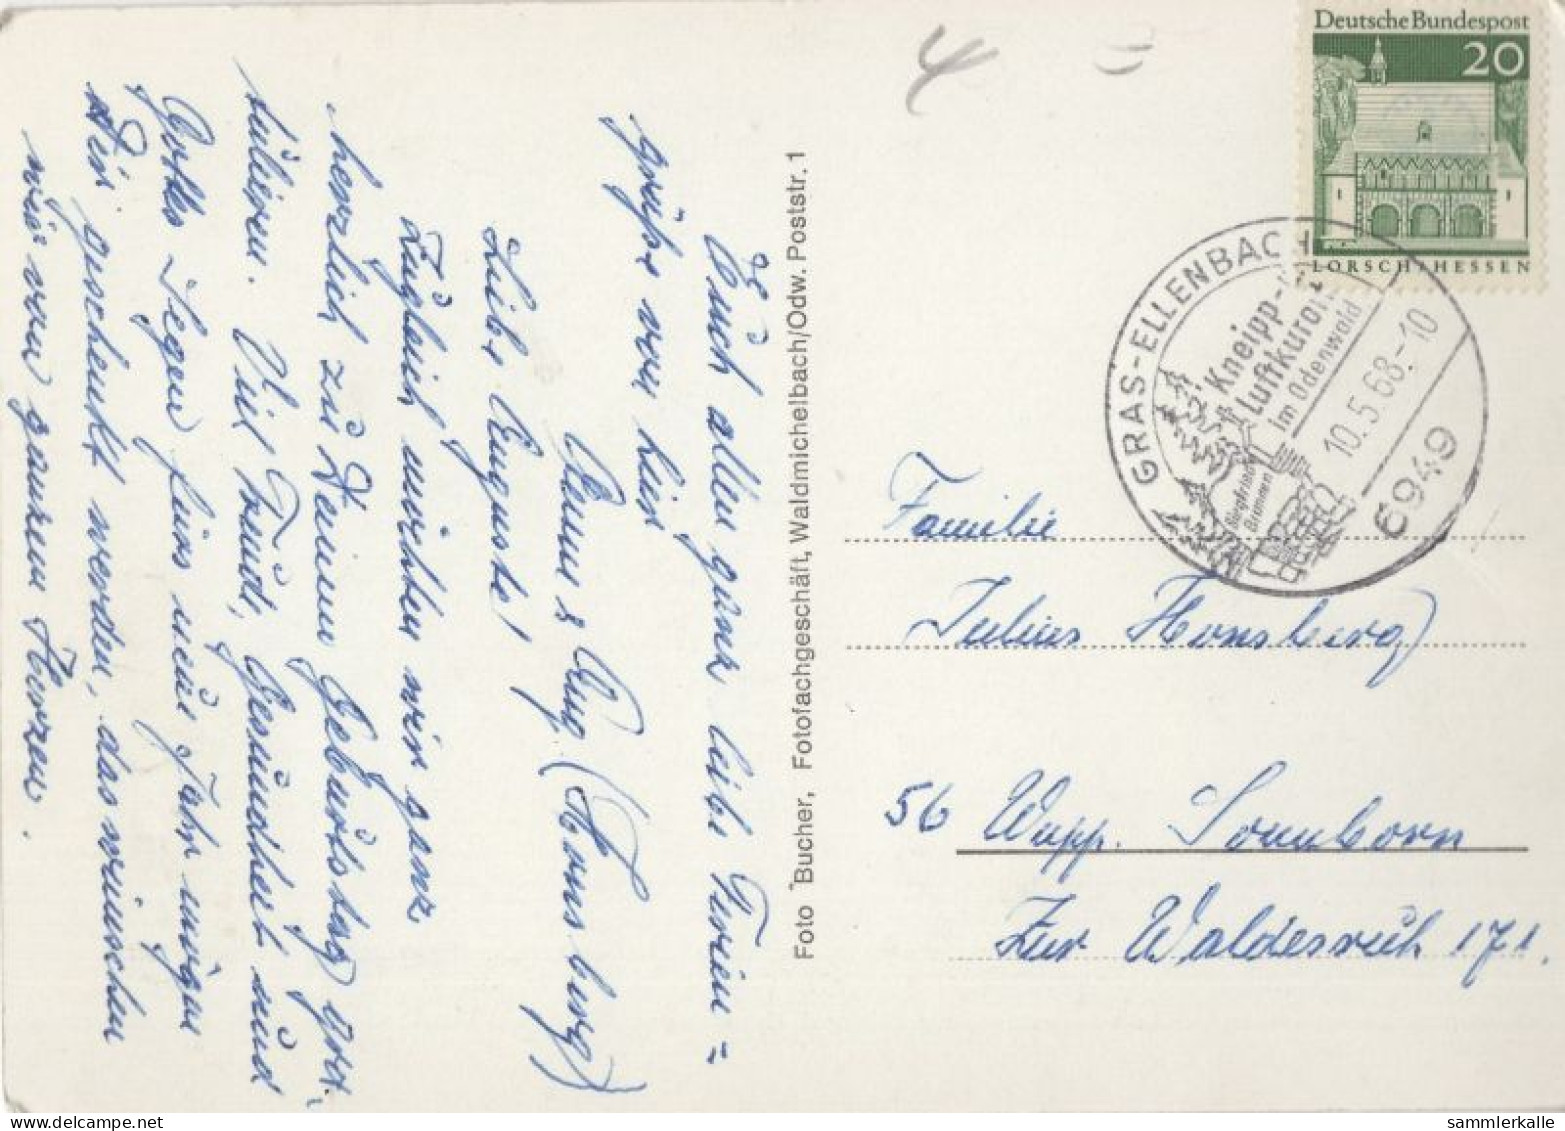 Euch allen ganz liebe Ferien=
grüße von hier
Anna & Aug (Honsberg)
Liebe Auguste!
Zugleich möchten wir ganz
herzlich zu Deinem Geburtstag gra-
tulieren. Viel Freude, Gesundheit und
Gottes Segen fürs neue Jahr mögen
Dir geschenkt werden, das wünschen
wir von ganzem Herzen.
Foto Bucher, Fotofachgeschäft, Waldmichelbach/Odw. Poststr. 1
4 =
Deutsche Bundespost
20
LORSCH/HESSEN
GRAS-ELLENBACH
Kneipp-
Luftkurort
im Odenwald
Siegfried
Brunnen
10.5.68.-10
6949
Familie
Julius Honsberg
56 Wupp. Sonnborn
Zur Waldesruh 171.
www.delcampe.net
sammlerkalle